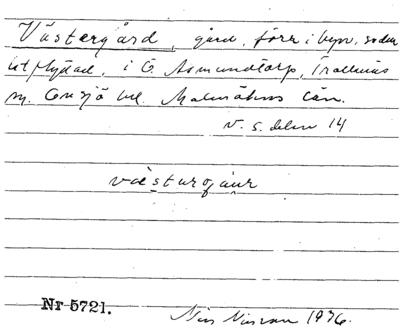 Västergård, gård, förr i byn, sedan
utflyttad, i Ö. Asmundtorp, Trollenäs
sn. Onsjö hd. Malmöhus län.
N. S. delen 14
västurgåur
Nr 5721.
Nils Nilsson 1936.